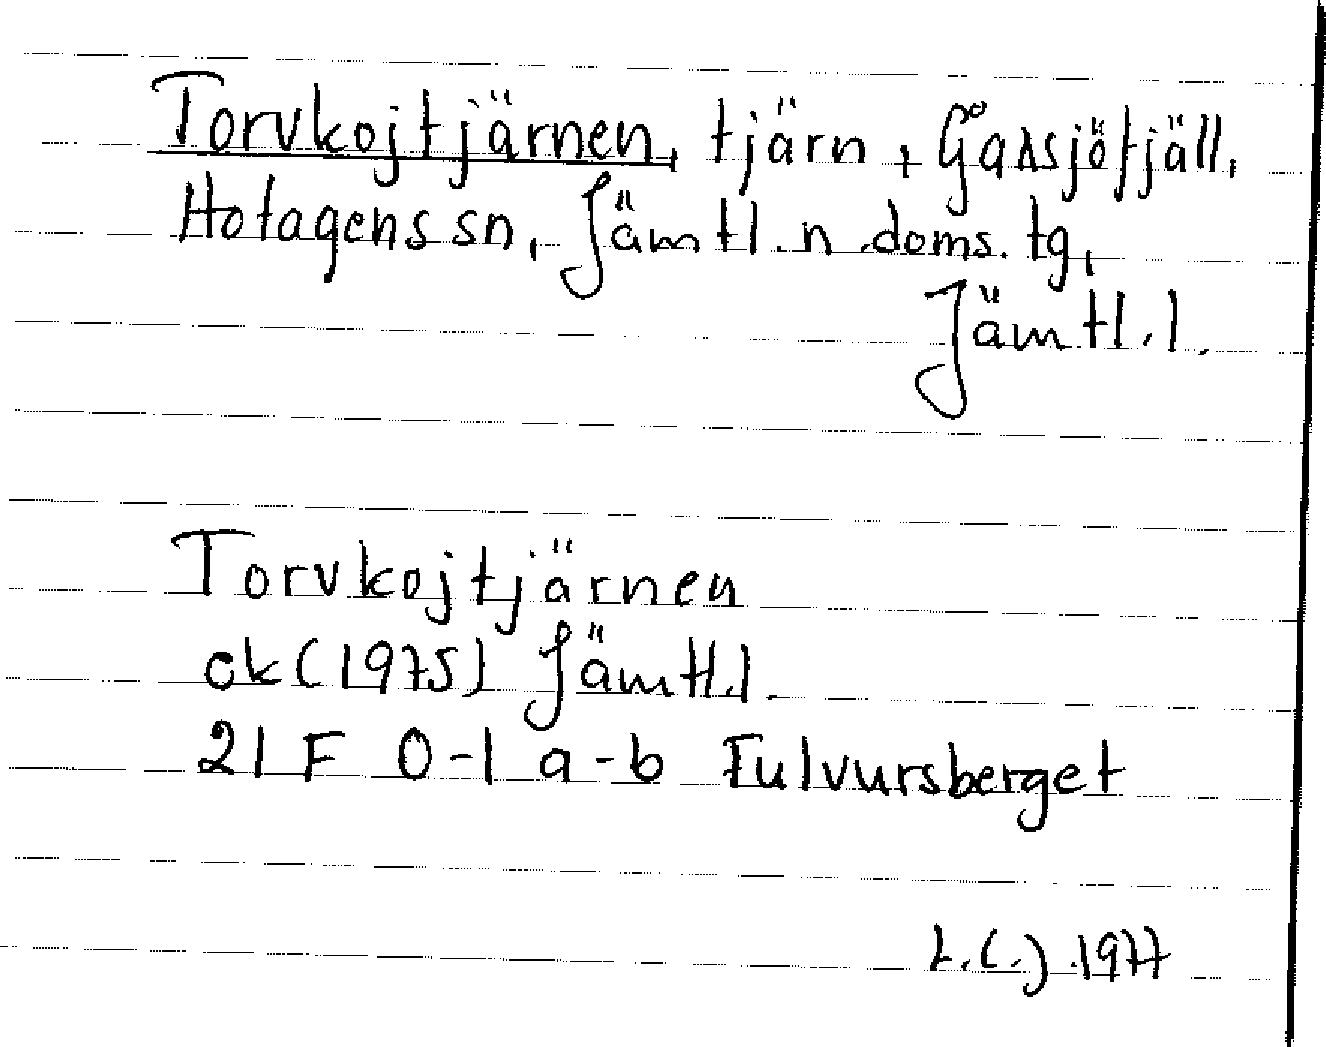 Torvkojtjärnen, tjärn, Gåxsjöfjäll,
Hotagens sn, Jämtl. n. doms. tg,
Jämtl. l.
Torvkojtjärnen
ek (1975) Jämtl. l.
21 F 0-1 a-b Fulvursberget
1977